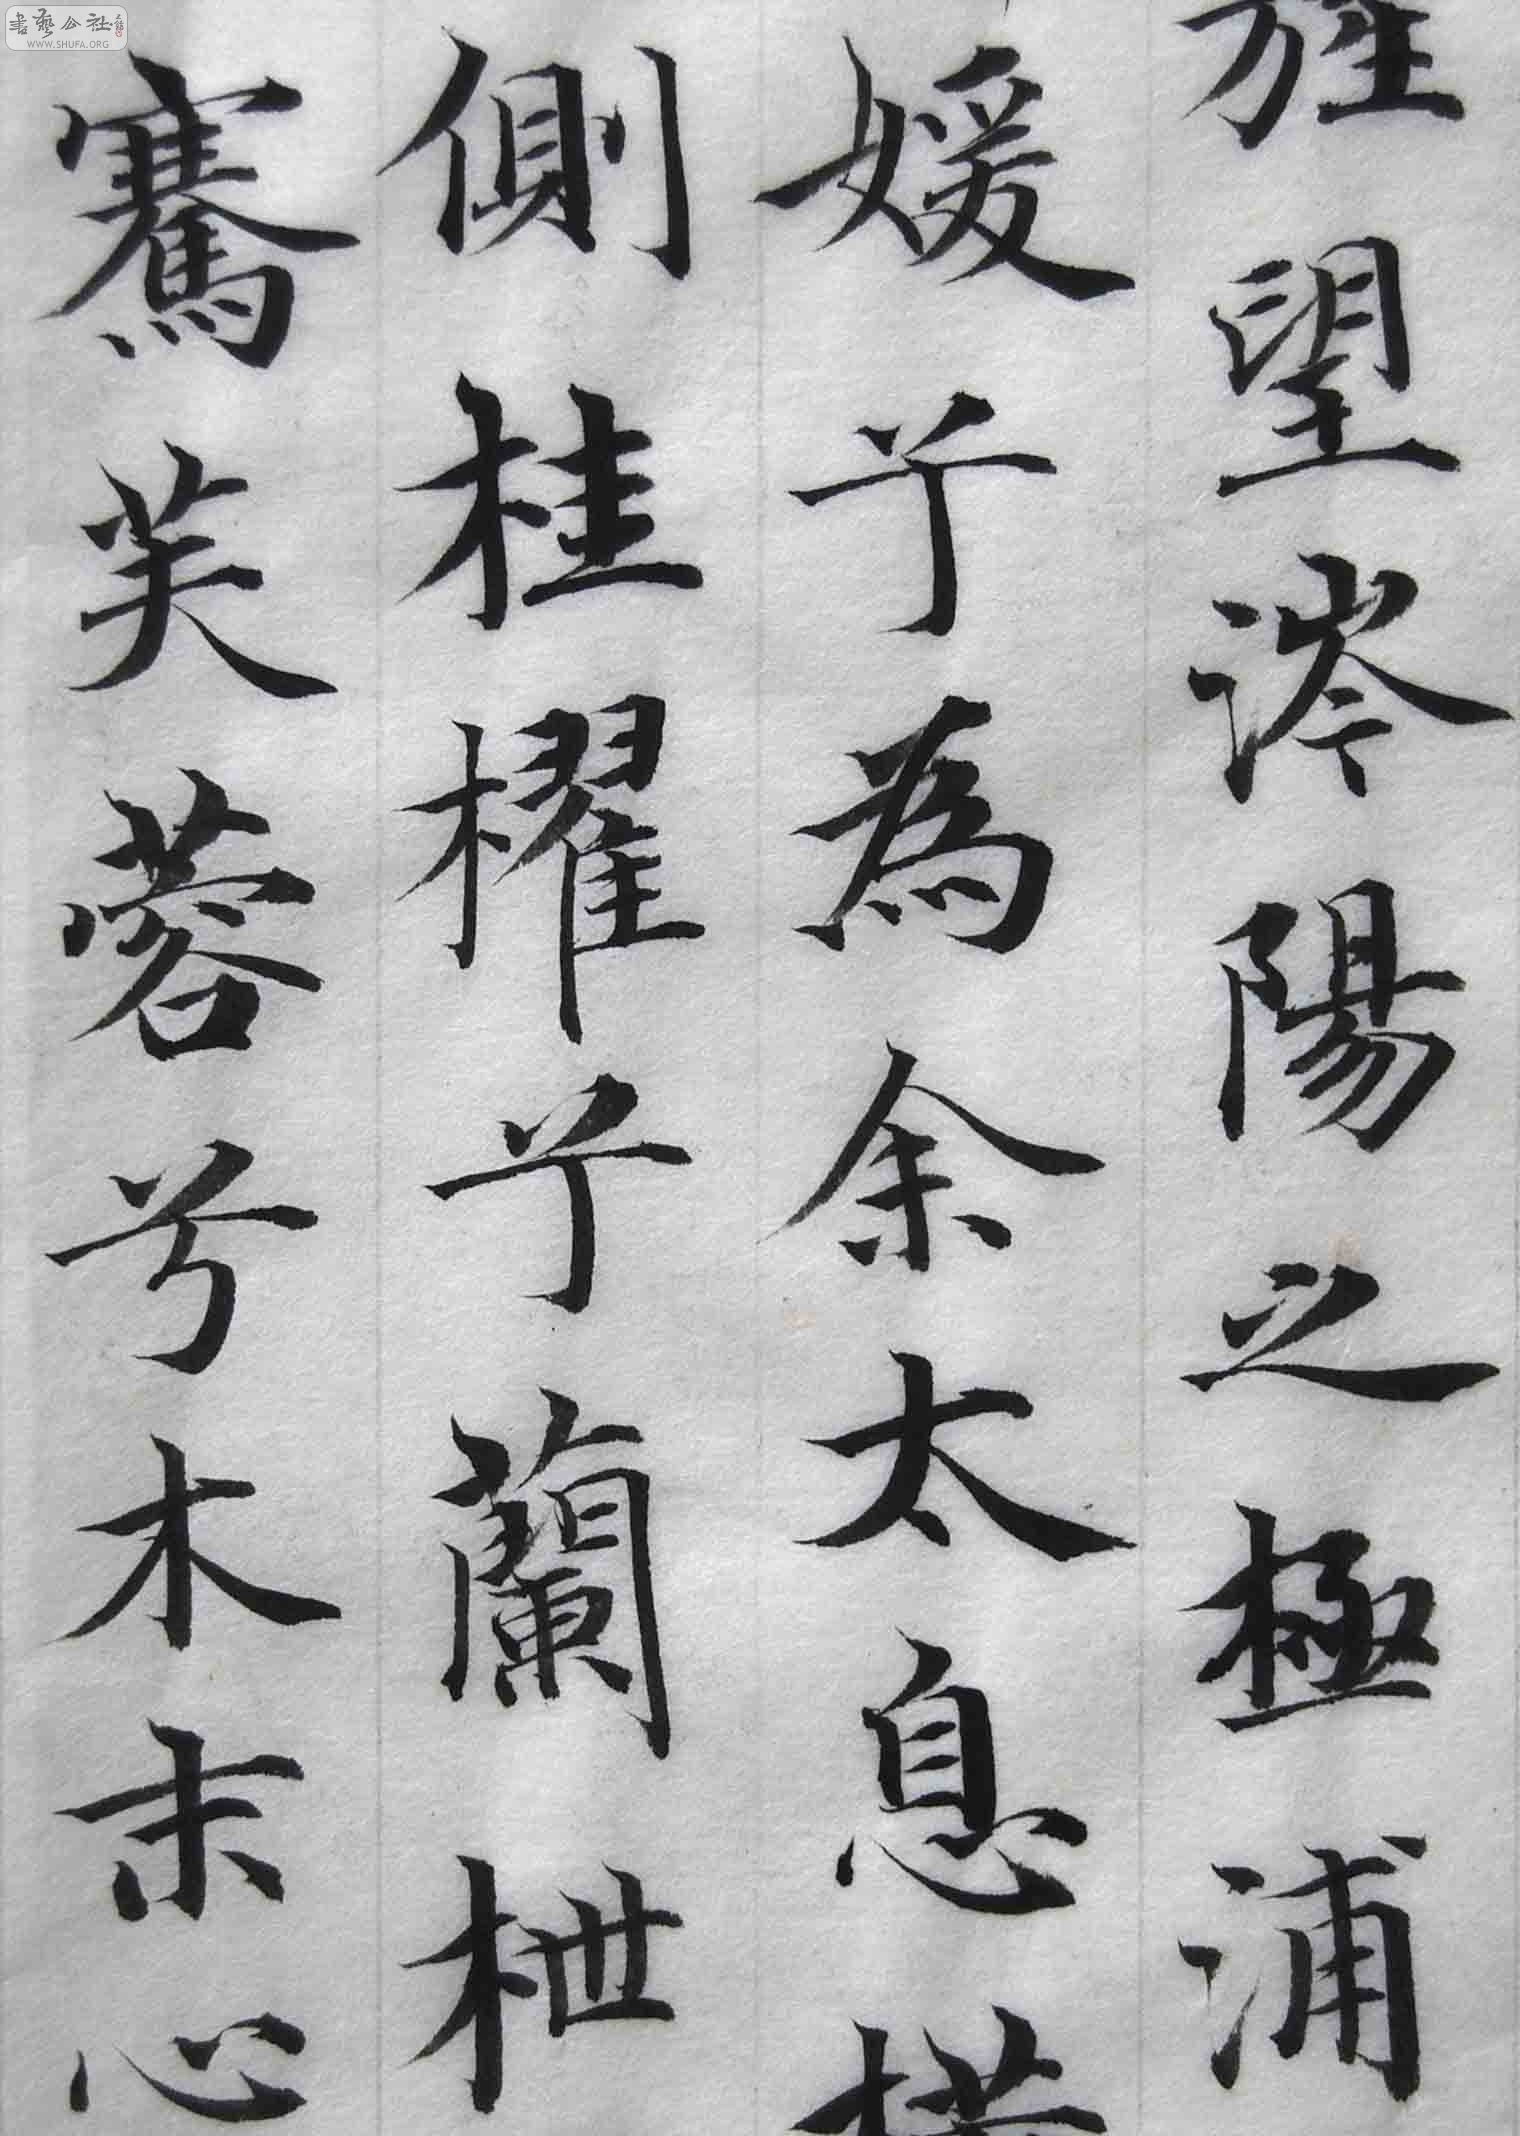 旌望涔陽之極浦
媛兮為余太息橫
側桂櫂兮蘭枻
搴芙蓉兮木末心
書藝公社
WWW.SHUFA.ORG